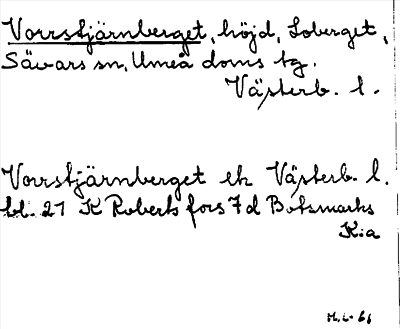 Vorrstjärnberget, höjd, Loberget,
Sävars sn, Umeå doms tg.
Västerb. l.
Vorrstjärnberget ek Västerb. l.
bl. 21 K Robertsfors 7d Botsmarks
K:a
M.L. 66